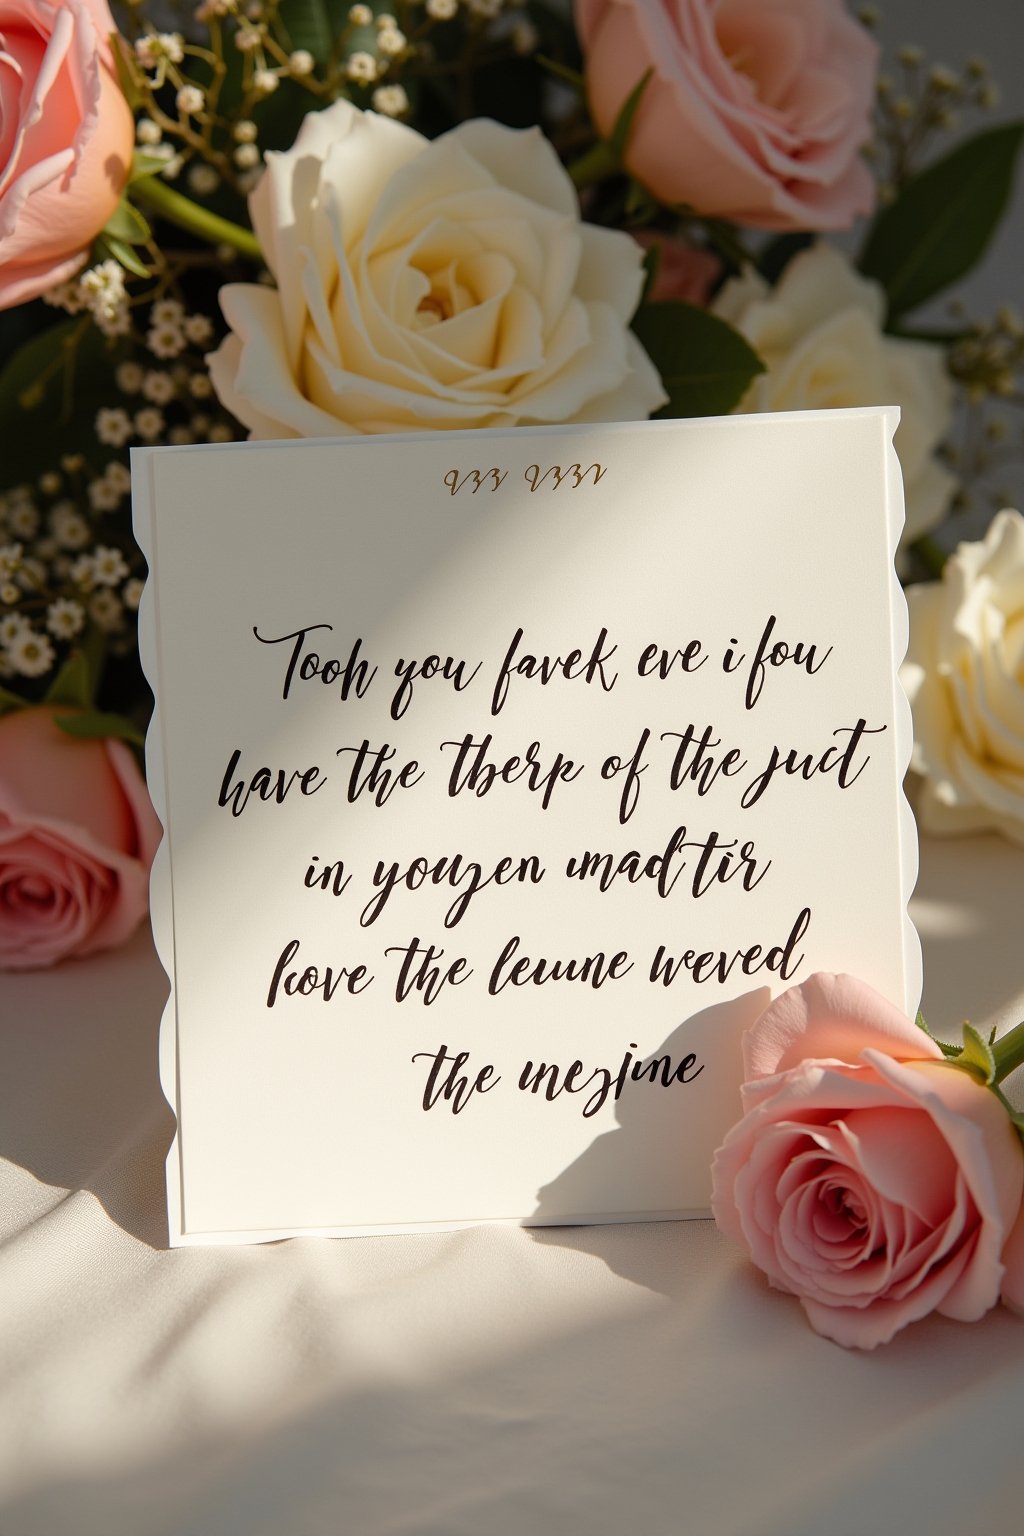 Tooh you favek eve i fou
have the tberp of the juct
in youzen umad tir
kove the leuune weved
the mezjine